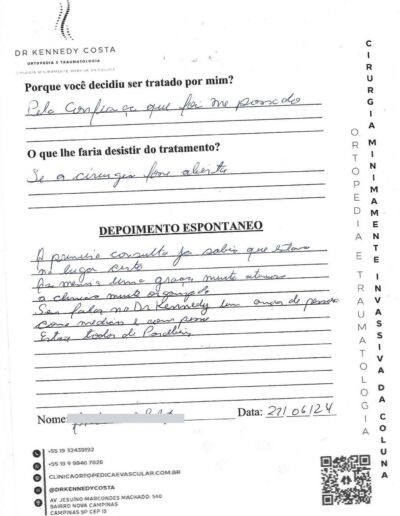 DR KENNEDY COSTA
ORTOPEDIA E TRAUMATOLOGIA
Porque você decidiu ser tratado por mim?
Pela confiança que foi me passado
O que lhe faria desistir do tratamento?
Se a cirurgia fosse aberta
DEPOIMENTO ESPONTANEO
A primeira consulta já sabia que estava
no lugar certo
As meninas uma graça, muito
a clinica muito organizada
Sem falar no Dr Kennedy um amor de pessoa
como medico e como pessoa
Estão todos de Parabéns
Nome:
Data: 27/06/24
CIRURGIA MINIMAMENTE INVASSIVA DA COLUNA
ORTOPEDIA E TRAUMATOLOGIA
+55 19 32439192
+55 19 9 9940 7026
CLINICAORTOPEDICAEVASCULAR.COM.BR
@DRKENNEDYCOSTA
AV. JESUÍNO MARCONDES MACHADO, 540
BAIRRO NOVA CAMPINAS
CAMPINAS SP CEP 13